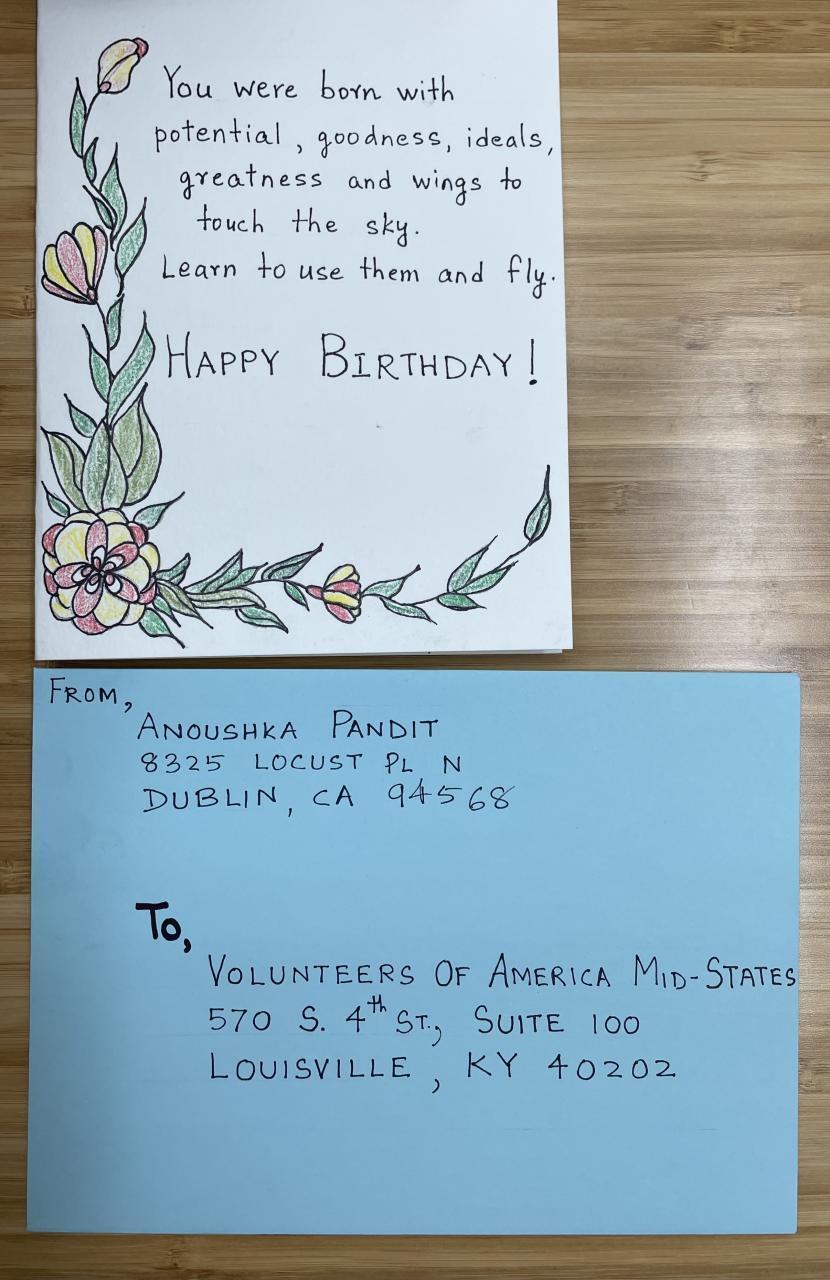 You were born with
potential, goodness, ideals,
greatness and wings to
touch the sky.
Learn to use them and fly.
HAPPY BIRTHDAY!
FROM,
ANOUSHKA PANDIT
8325 LOCUST PL N
DUBLIN, CA 94568
To,
VOLUNTEERS OF AMERICA MID-STATES
570 S. 4th ST., SUITE 100
LOUISVILLE, KY 40202